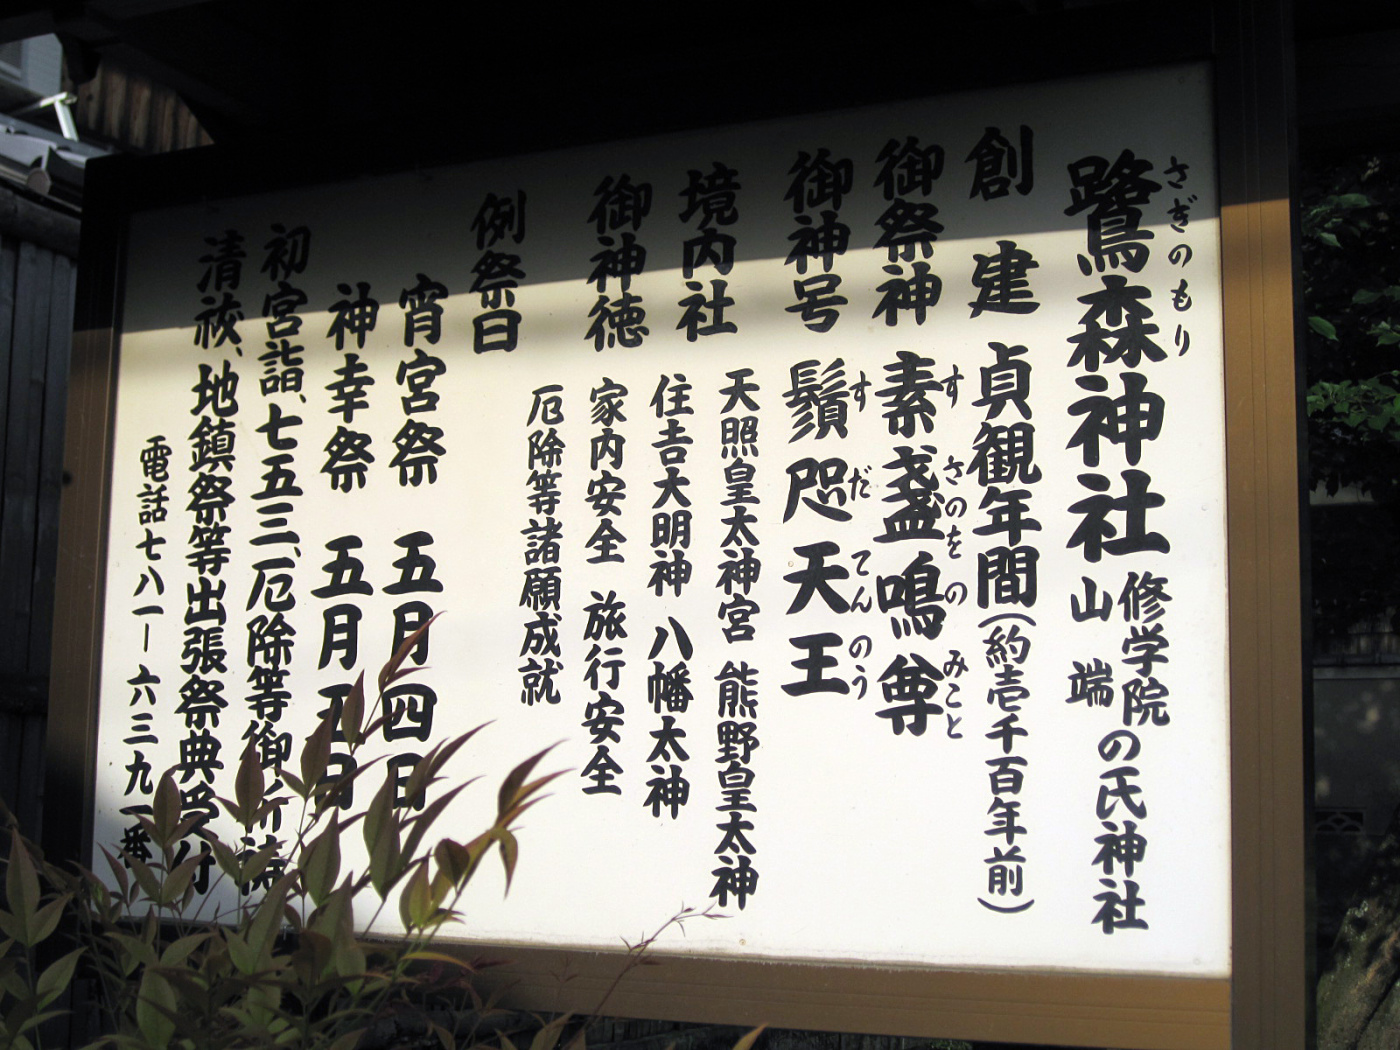 鷺森神社 修学院山端の氏神社
さぎのもり
創建 貞観年間(約壱千百年前)
御祭神 素盞鳴尊
すさのをのみこと
御神号 鬚咫天王
すだてんのう
境内社 天照皇太神宮 熊野皇太神
住吉大明神 八幡太神
御神徳 家内安全 旅行安全
厄除等諸願成就
例祭日
宵宮祭 五月四日
神幸祭 五月五日
初宮詣、七五三、厄除等御祈祷
清祓、地鎮祭等出張祭典受付
電話七八一ー六三九一番